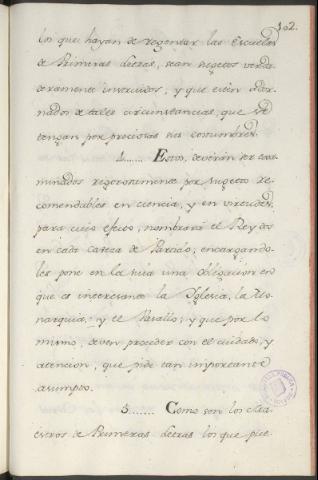 102.
los que hayan de regentar las Escuelas
de Primeras Letras, sean sugetos verda
deramente instruidos, y que estén ador
nados de tales circunstancias, que se
tengan por preciosas sus costumbres.
4...... Estos, deverán ser exa
minados rigorosamente por sugetos re
comendables en ciencia, y en virtudes,
para cuio efecto, nombrará el Rey dos
en cada Caveza de Partido, encargando
les pone en la suia una obligacion en
que se interesan la Yglesia, la Mo
narquia, y el Vasallo; y que por lo
mismo, deven proceder con el cuidado, y
atencion, que pide tan importante
asumpto.
5...... Como son los Ma
estros de Primeras Letras los que pue